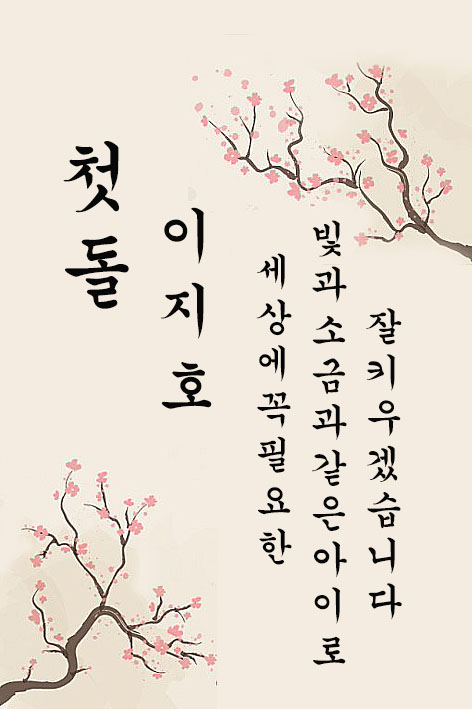 첫돌
이지호
세상에꼭필요한
빛과소금과같은아이로
잘키우겠습니다